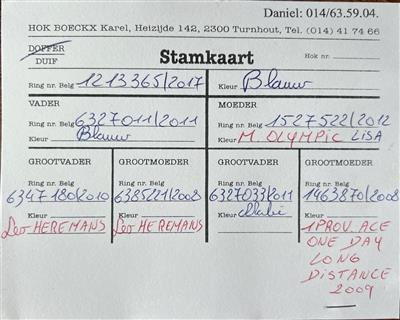 Daniel: 014/63.59.04.
HOK BOECKX Karel, Heizijde 142, 2300 Turnhout, Tel. (014) 41 74 66
DOFFER
DUIF
Stamkaart
Hok nr.
Ring nr. Belg 1213365/2017
Kleur Blauw
VADER
Ring nr. Belg 6327011/2011
Kleur Blauw
MOEDER
Ring nr. Belg 1527522/2012
Kleur M. OLYMPIC LISA
GROOTVADER
Ring nr. Belg
6347180/2010
Kleur
Leo HEREMANS
GROOTMOEDER
Ring nr. Belg
6385221/2008
Kleur
Leo HEREMANS
GROOTVADER
Ring nr. Belg
6327033/2011
Kleur
GROOTMOEDER
Ring nr. Belg
1463870/2008
Kleur
1 PROV. ACE
ONE DAY
LONG
DISTANCE
2009